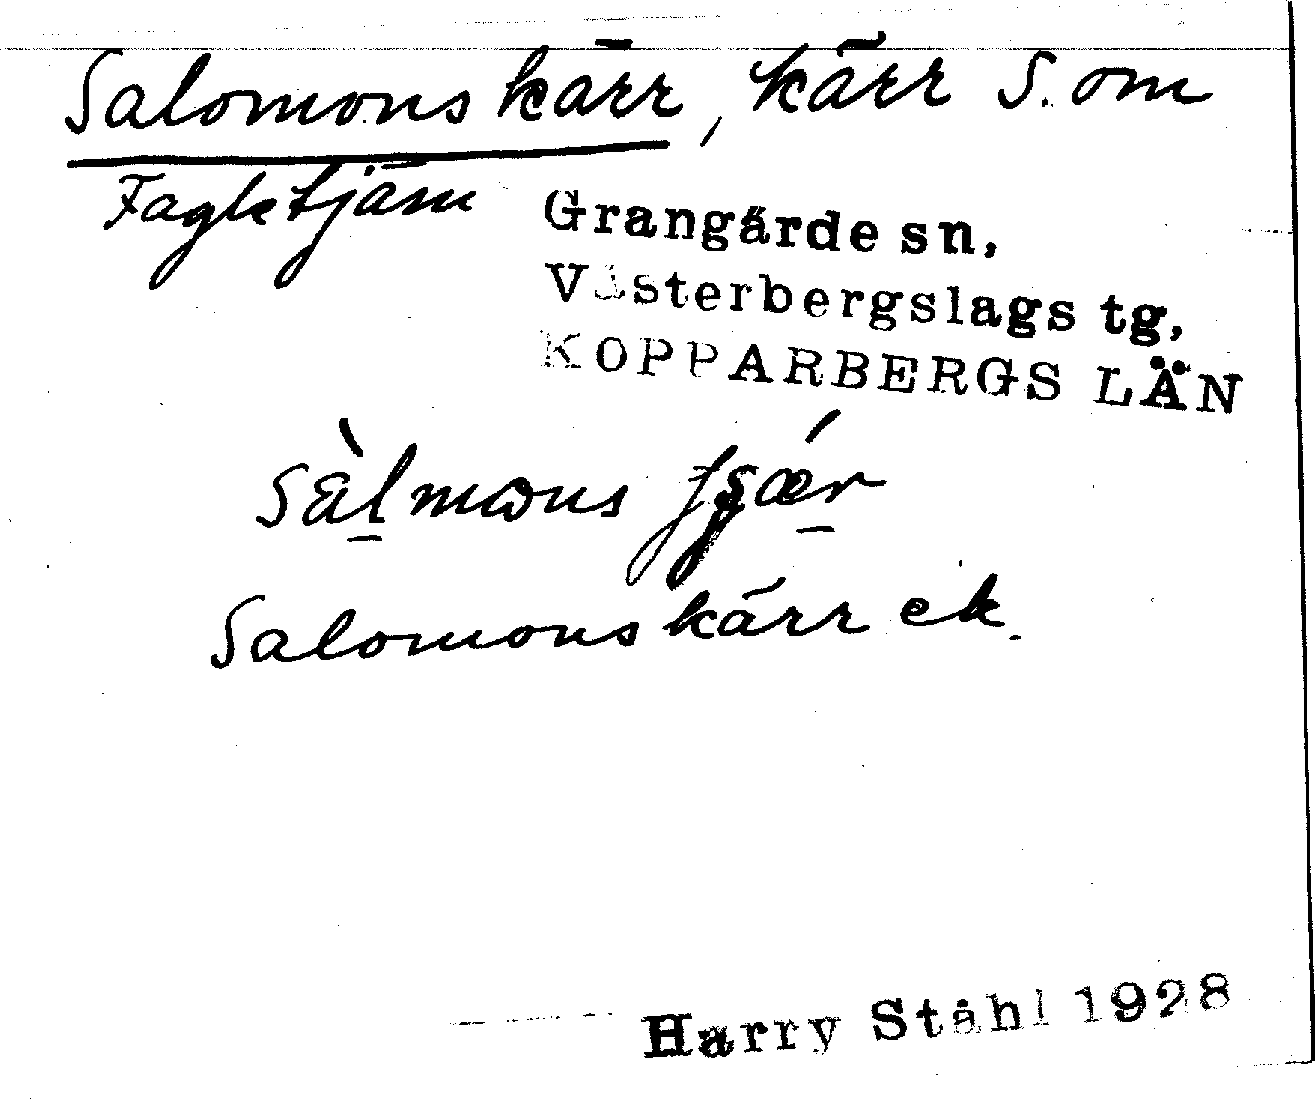 Salomonskärr, kärr S. om
Fagletjärn
Grangärde sn,
Västerbergslags tg,
KOPPARBERGS LÄN
Salomonskärr ek.
Harry Ståhl 1928